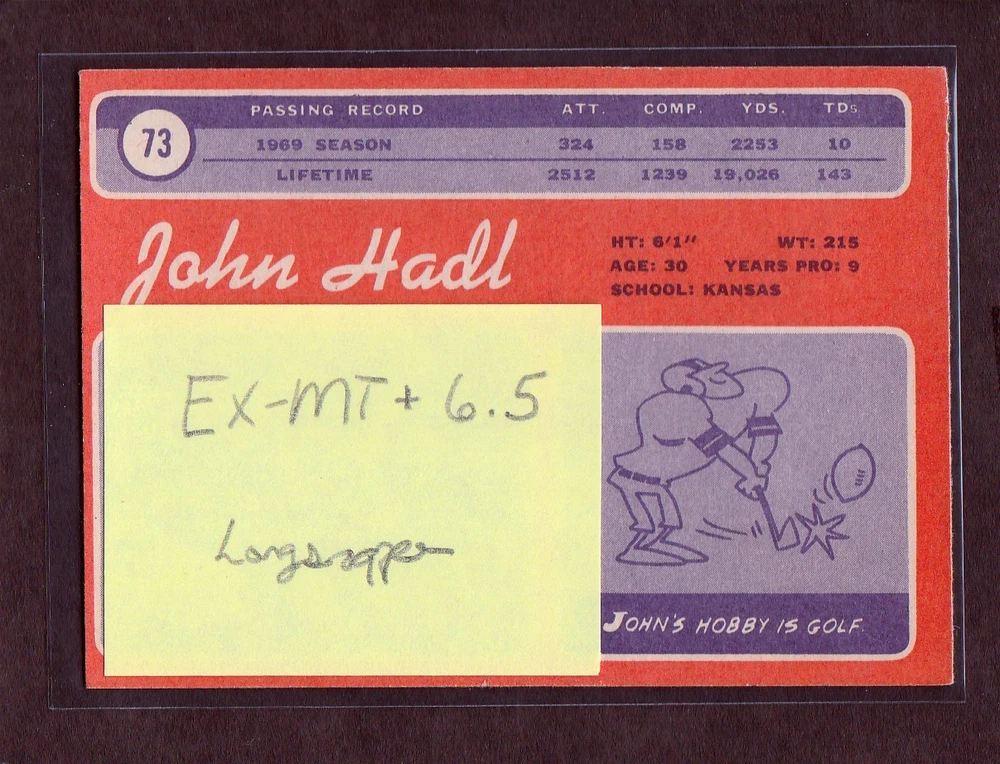 73
PASSING RECORD ATT. COMP. YDS. TDs.
1969 SEASON 324 158 2253 10
LIFETIME 2512 1239 19,026 143
John Hadl
HT: 6'1" WT: 215
AGE: 30 YEARS PRO: 9
SCHOOL: KANSAS
EX-MT+ 6.5
JOHN'S HOBBY IS GOLF.